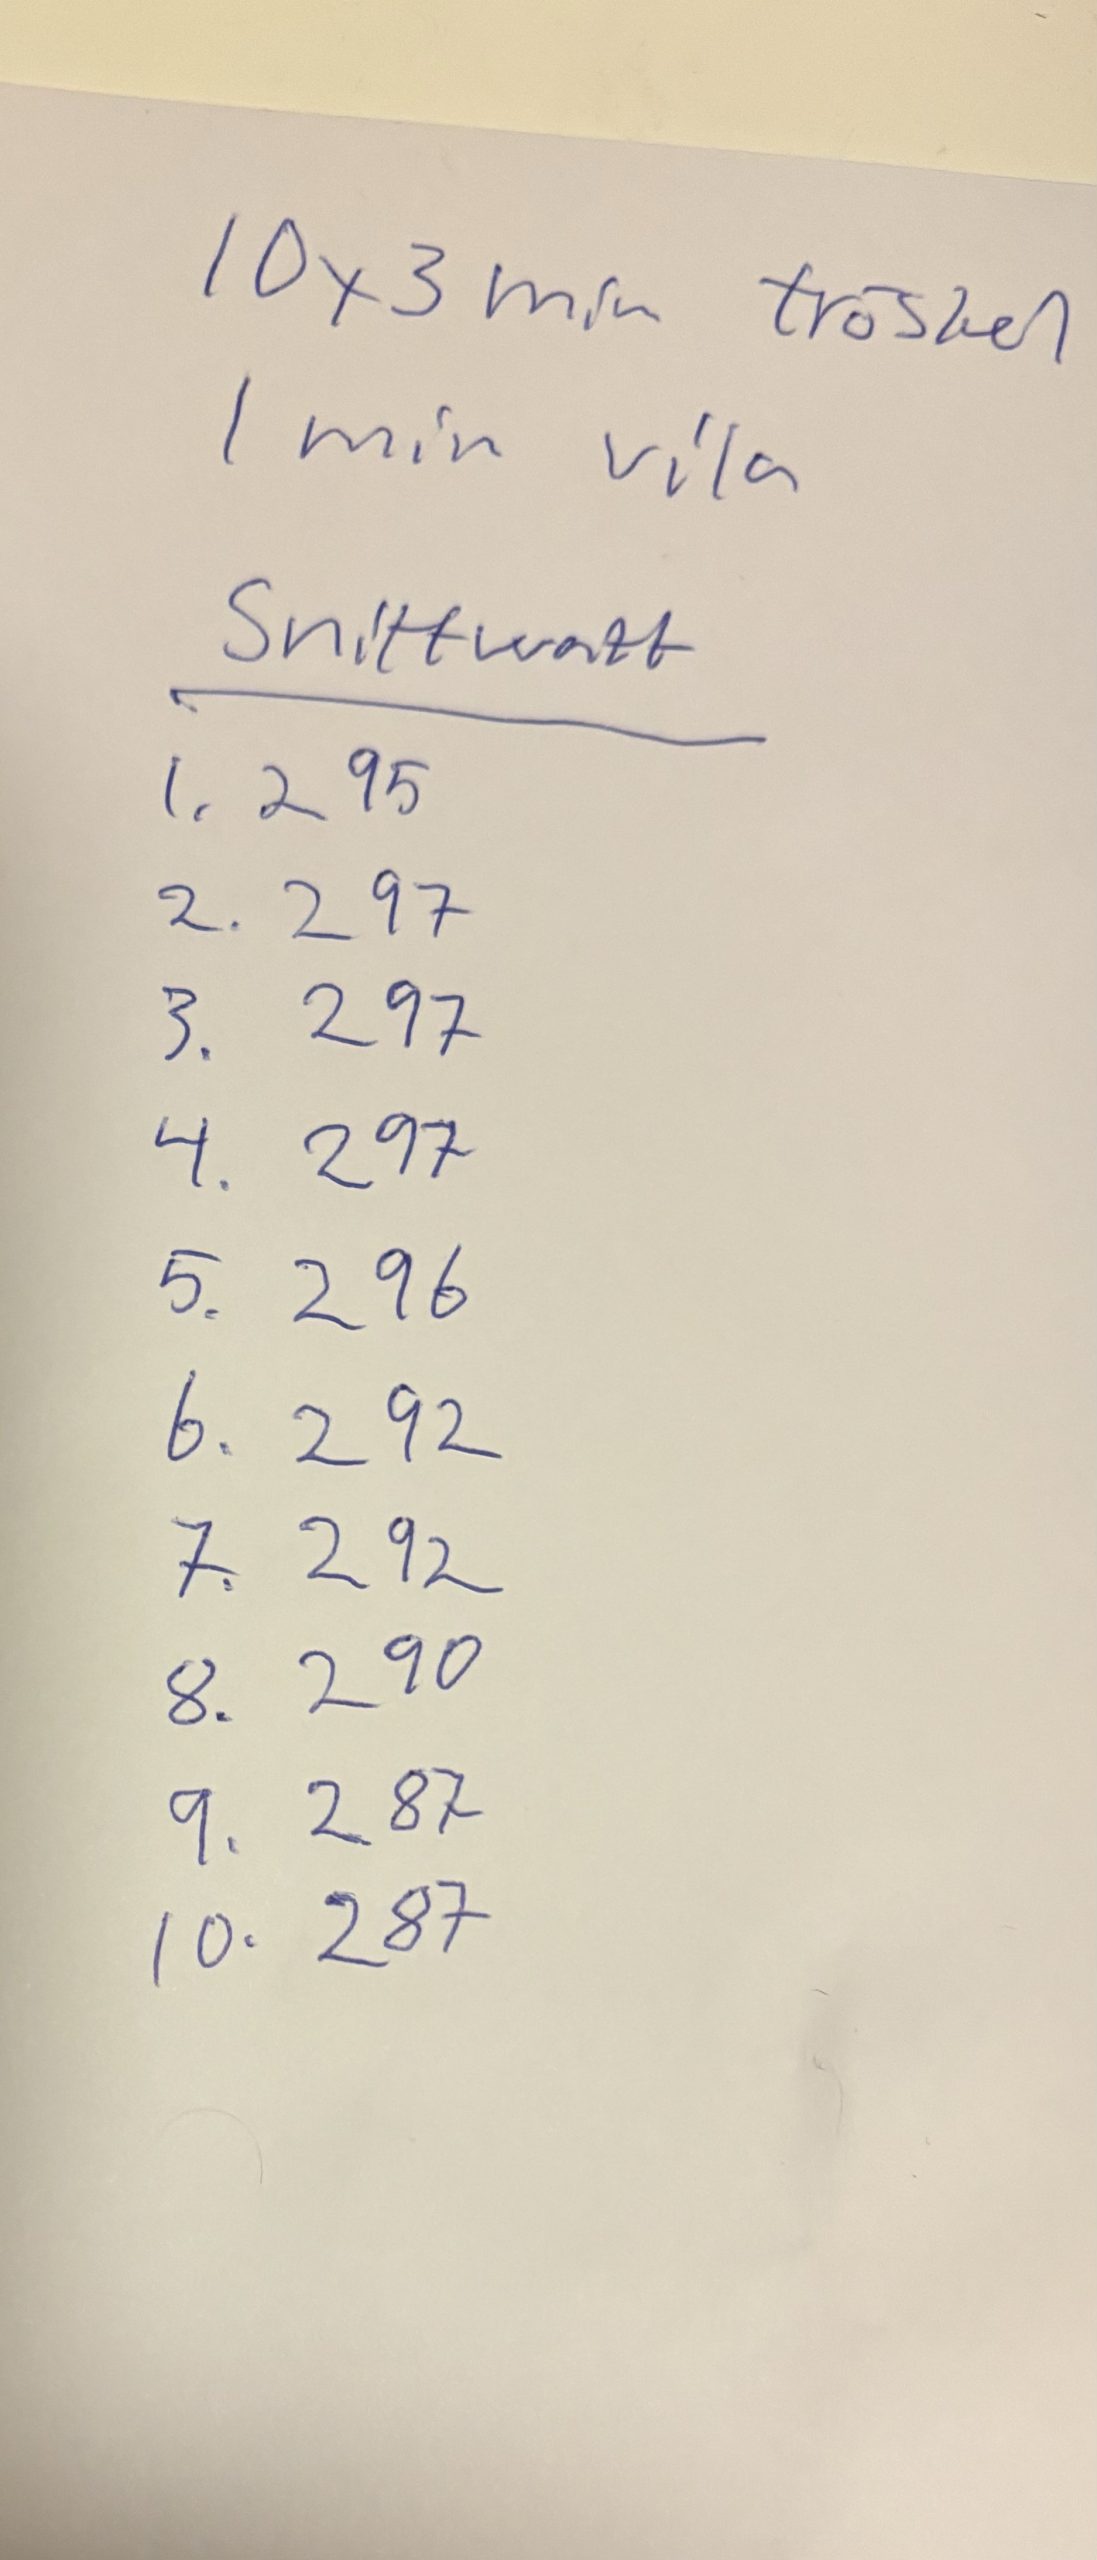 10x3 min tröskel
1 min vila
Snittwatt
1. 295
2. 297
3. 297
4. 297
5. 296
6. 292
7. 292
8. 290
9. 287
10. 287